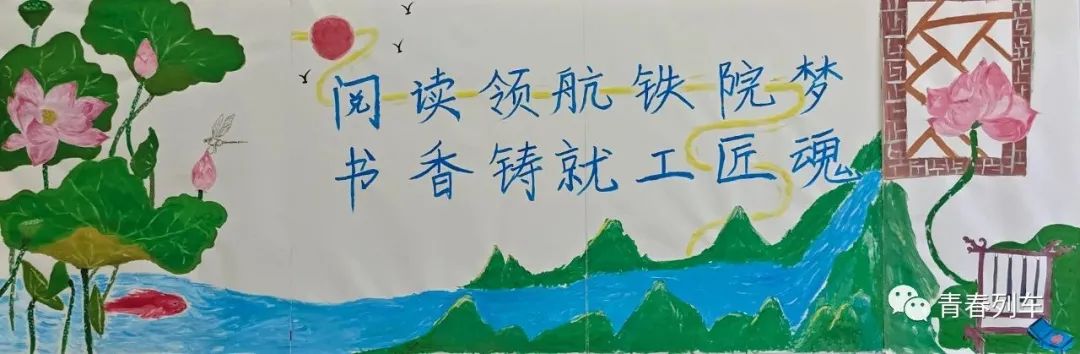 阅读领航铁院梦
书香铸就工匠魂
青春列车